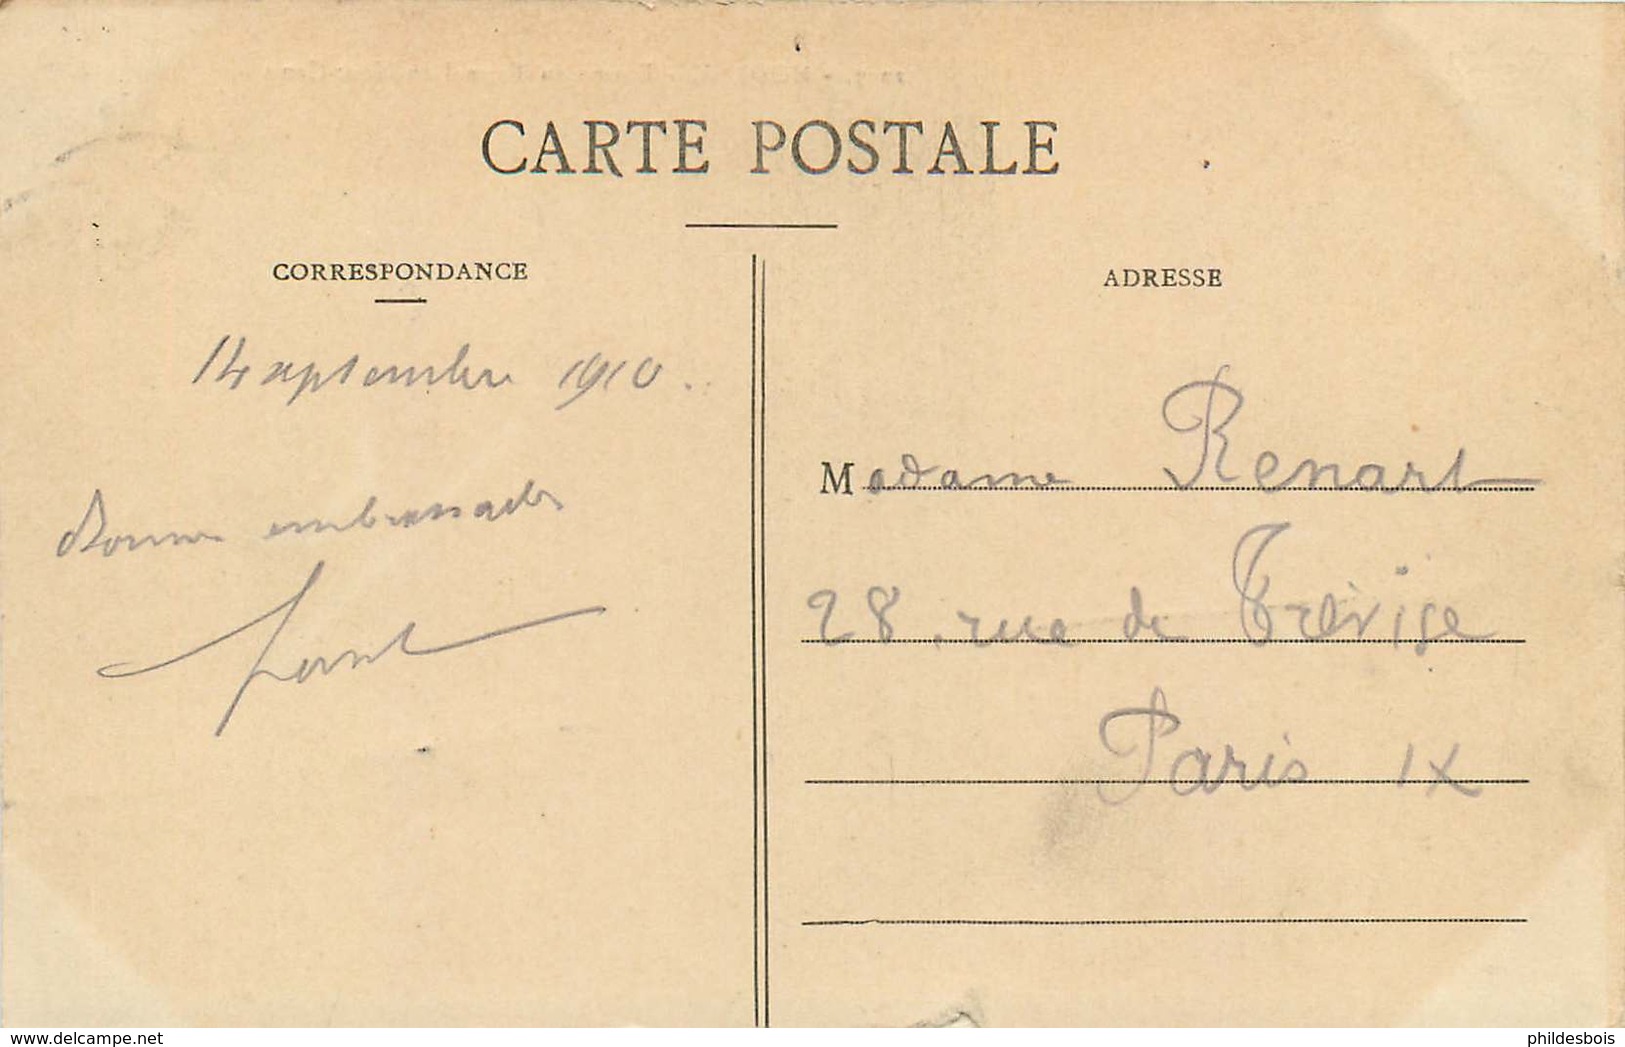 CARTE POSTALE
CORRESPONDANCE
14 septembre 1910.
Bonnes embrassades
ADRESSE
Madame Renart
28, rue de Trévise
Paris IX
www.delcampe.net
phildesbois